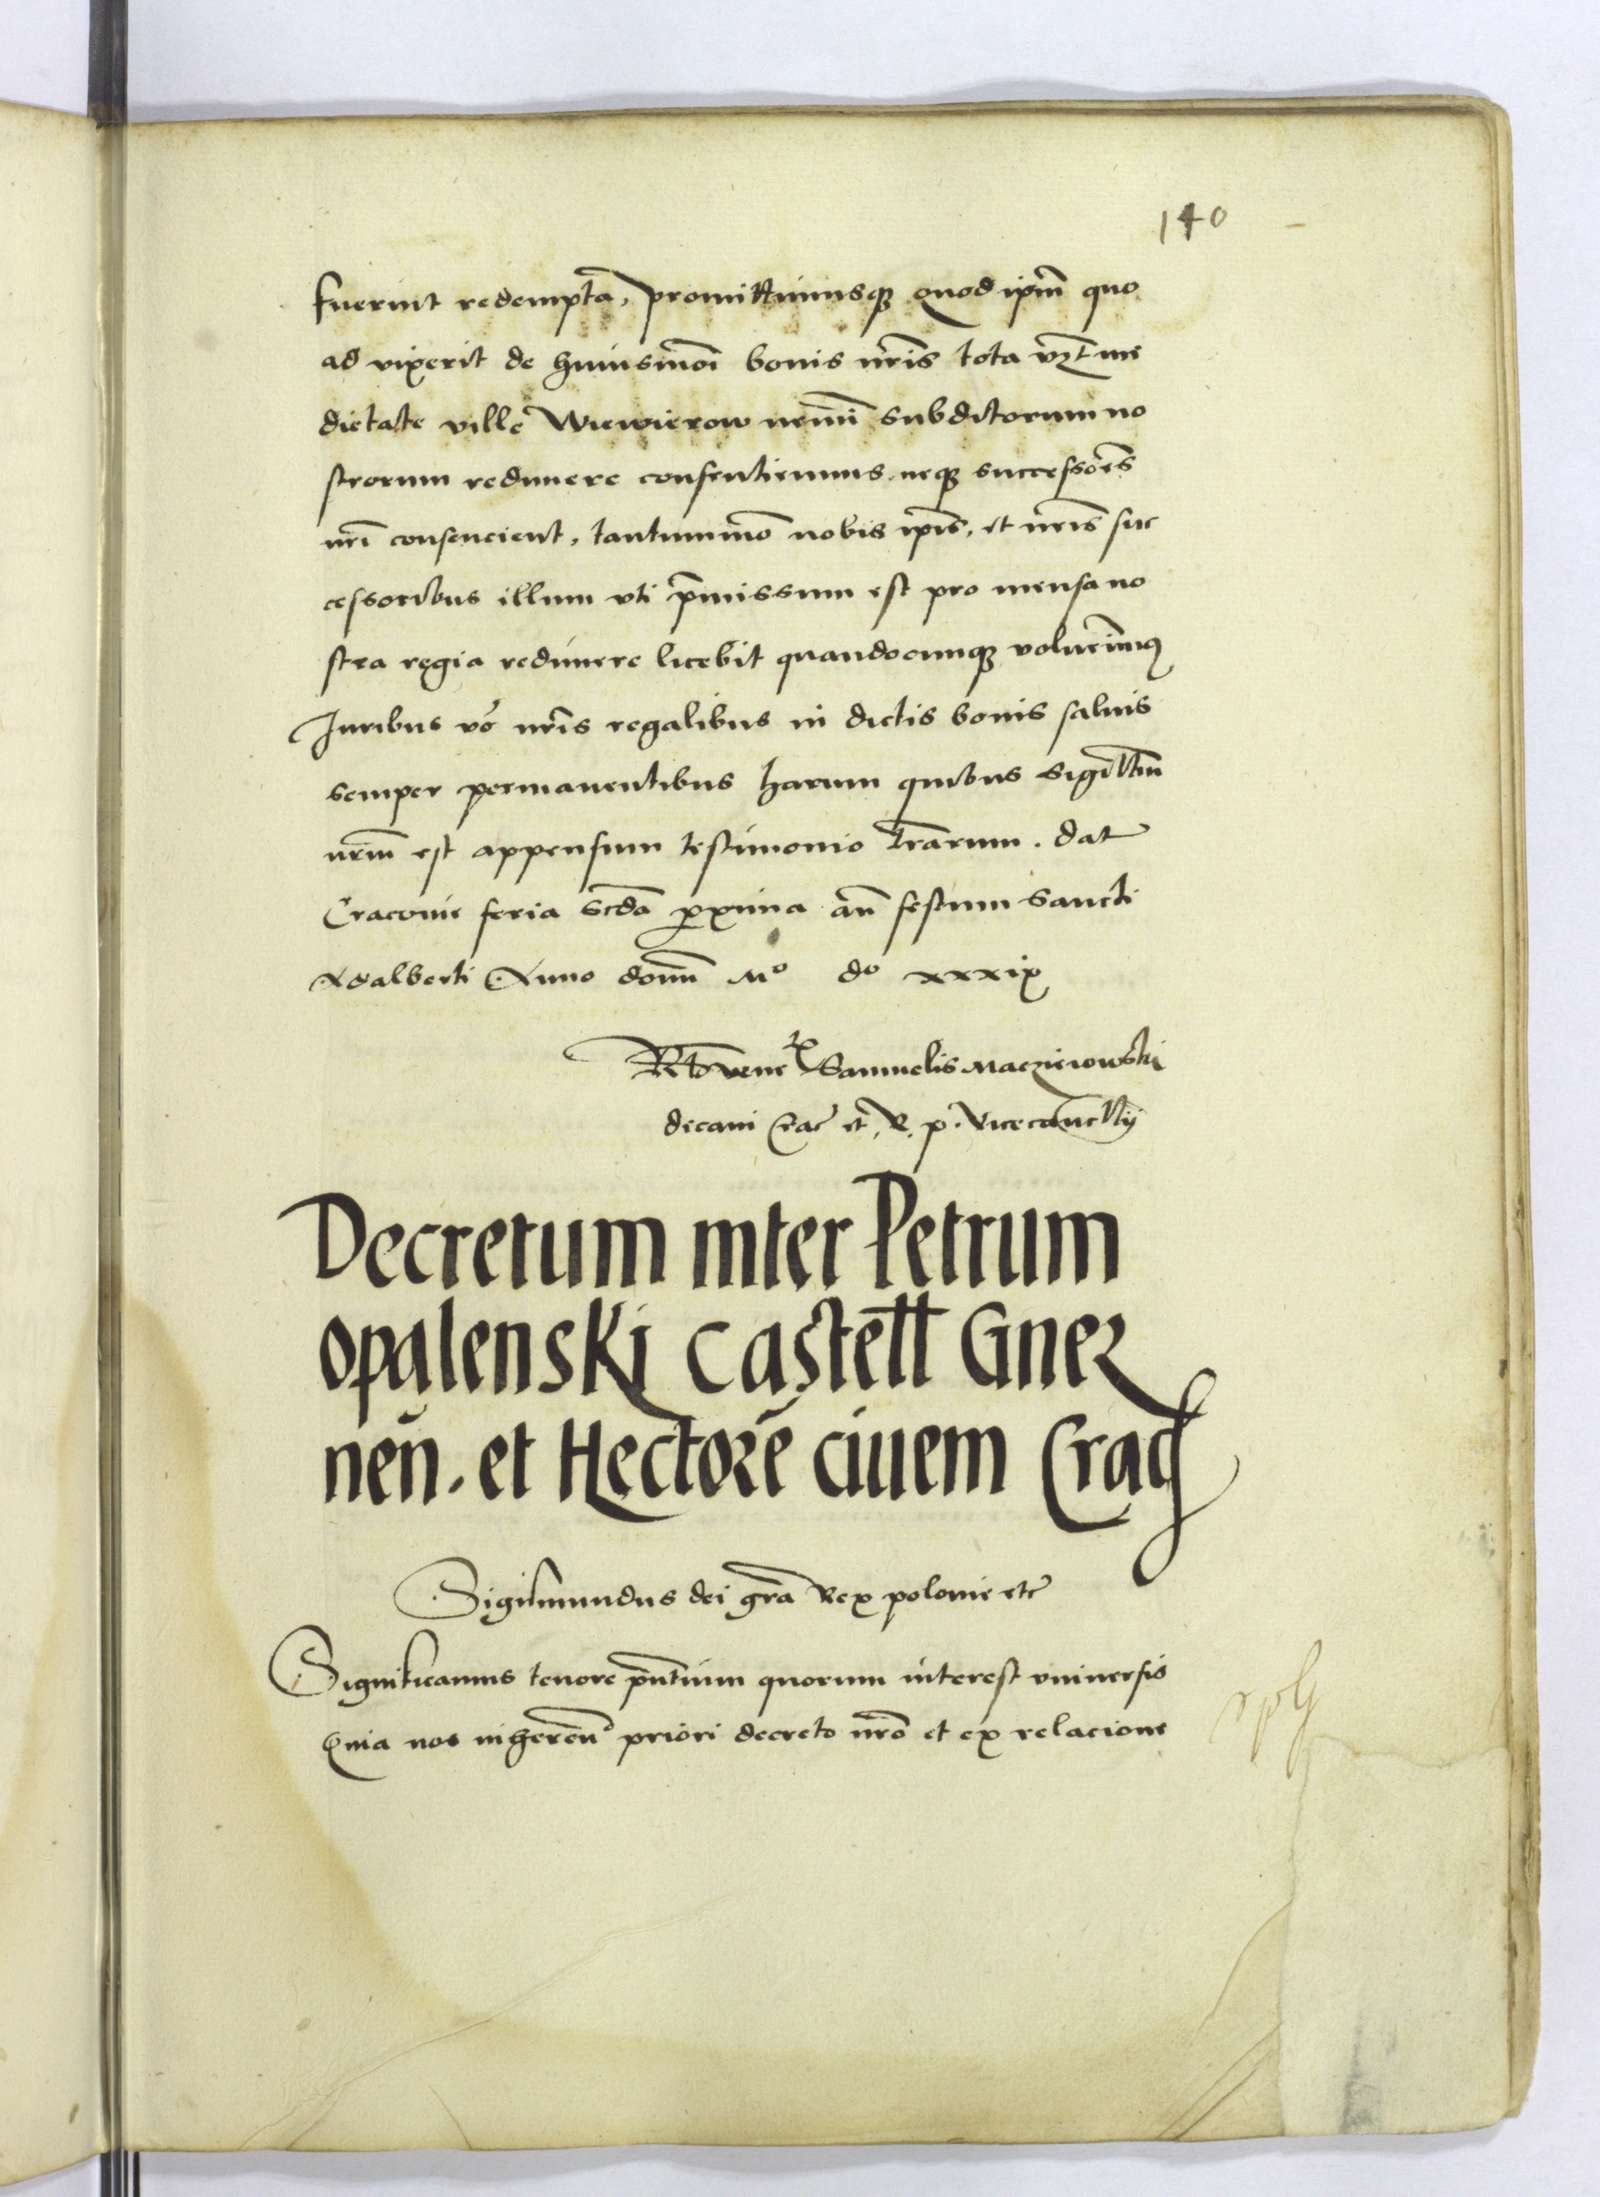 140
fuerint redempta, promittimusq₃ quod ipm̄ quo
ad vixerit de huiusmōi bonis nr̄is tota vz̄t me
dietate ville Wiewierow nemī subditorum no
strorum redimere consentiemus. neq₃ successōres
nr̄i consencient, tantummō nobis ipīs, et nr̄is suc
cessoribus illum vti p̄missum est pro mensa no
stra regia redimere licebit quandocunq₃ voluerim⁹
Juribus vō nr̄is regalibus in dictis bonis saluis
semper permanentibus harum quibus sigillm̄
nrm̄ est appensum testimonio lr̄arum. dat
Cracouie feria scdā proxima an̄ festum Sancti
Adalberti Anno domī Mº dº xxxix
Rlō vene Samuelis Maczieiowski
decani Crac et R. p. Vicecancllÿ
Decretum inter Petrum
opalenski Castell Gnez
nen̄. et Hectorē ciuem Crac
Sigismundus dei gr̄a Rex polonie etc
Significamus tenore pn̄tium quorum interest vniuersis
Quia nos inheren̄ priori decreto nr̄o et ex relacione